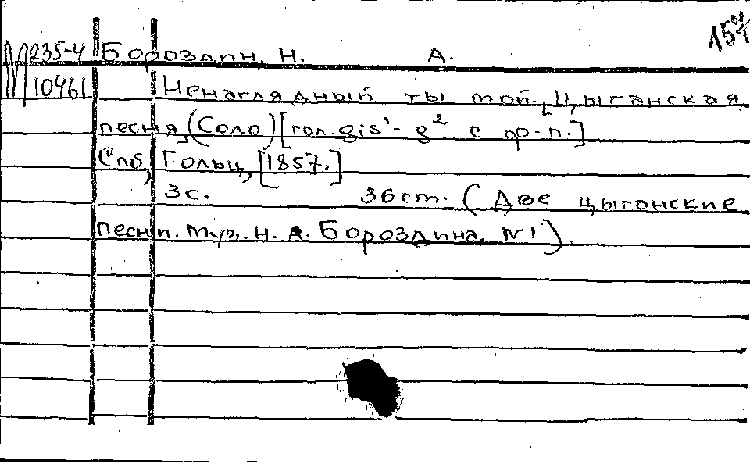 М 235-4 Бороздин, Н. А.
10461 Ненаглядный ты мой, Цыганская
песня, (Соло) [гол. gis¹- g² с ф-п.]
Спб, Гольц, [1857.]
3 с. 36 ст. (Две цыганские
песни. Муз. Н. А. Бороздина, №1).